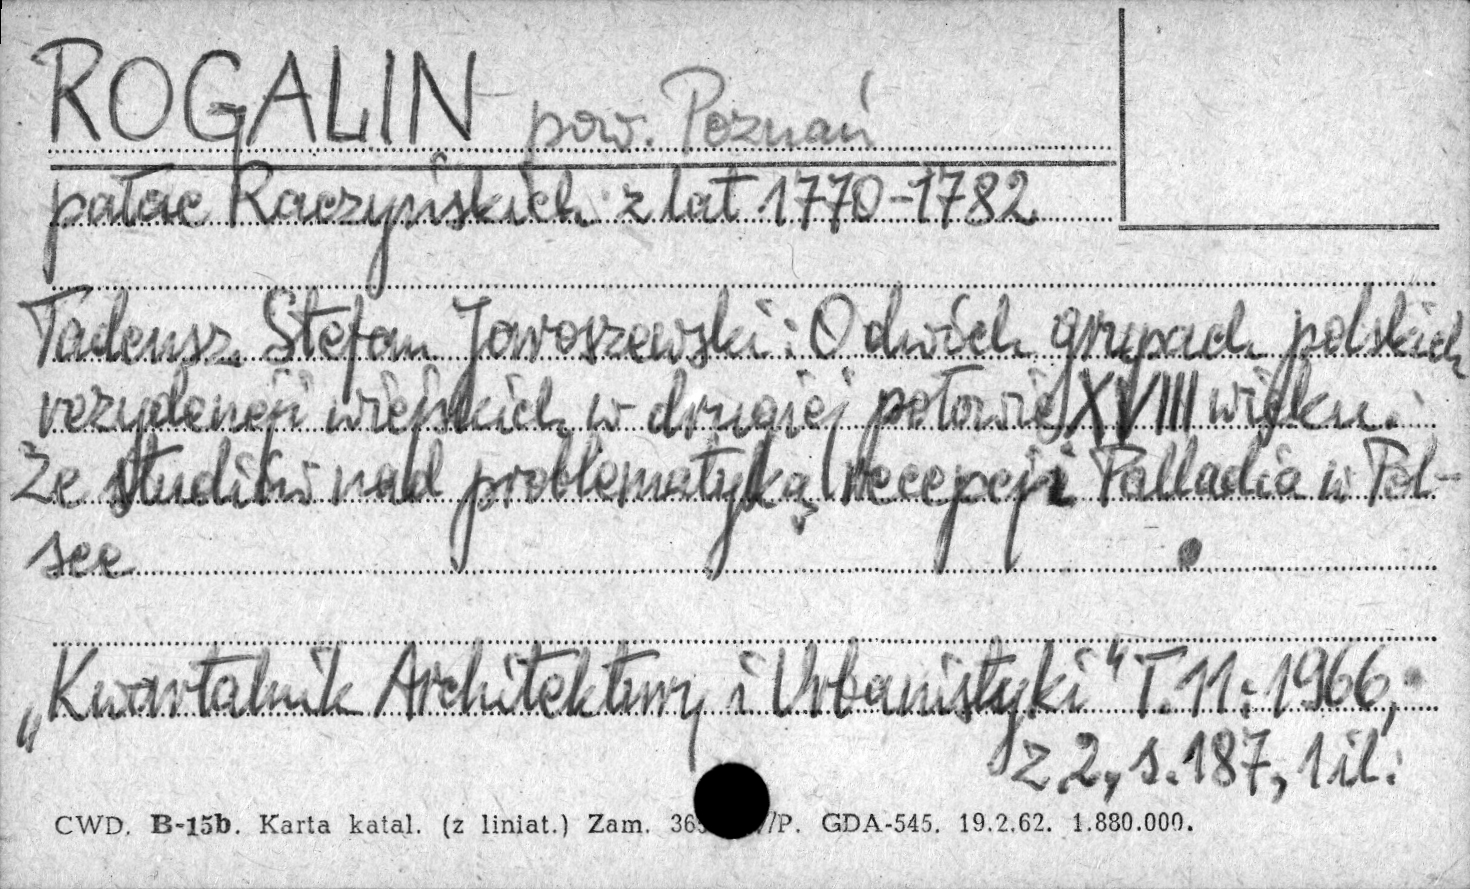 ROGALIN pow. Poznań
pałac Raczyńskich z lat 1770-1782
Tadeusz Stefan Jaroszewski: O dwóch grupach polskich
rezydencji wiejskich w drugiej połowie XVIII wieku.
Ze studiów nad problematyką recepcji Palladia w Pol-
sce
„Kwartalnik Architektury i Urbanistyki" T. 11: 1966,
z 2, s. 187, 1 il.
CWD. B-15b. Karta katal. (z liniat.) Zam. /P. GDA-545. 19.2.62. 1.880.000.